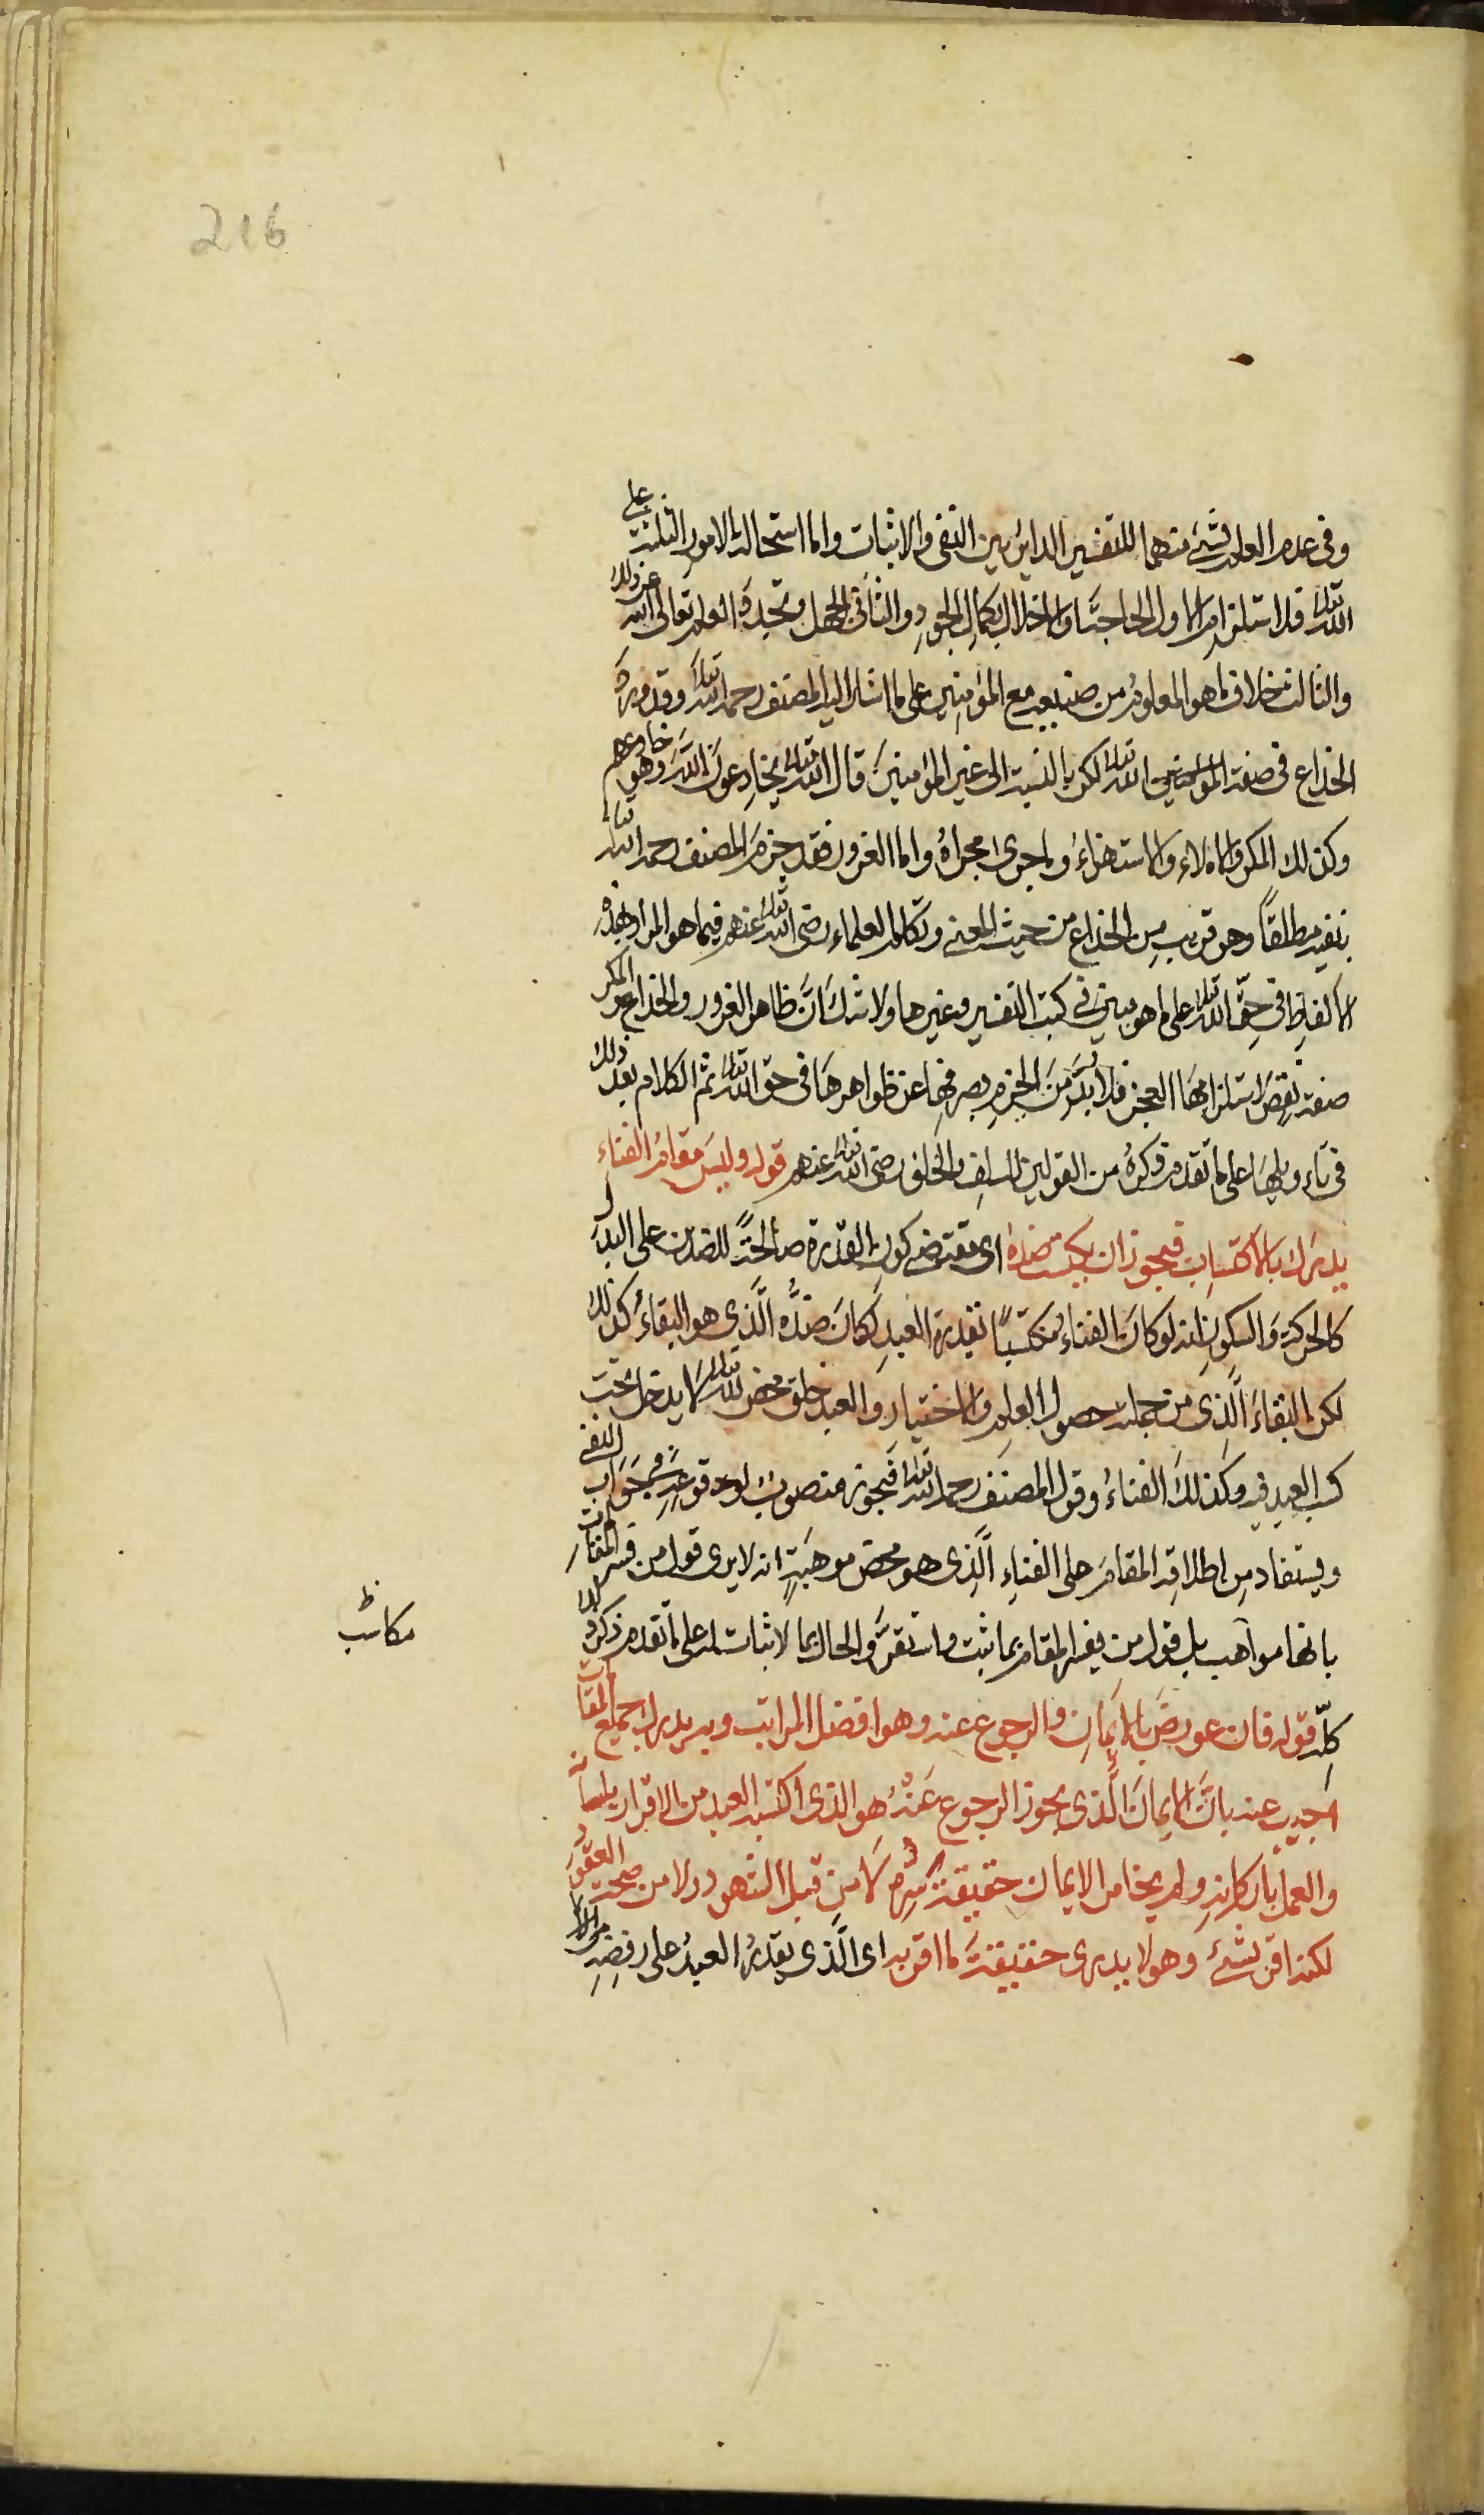 216
وفى عدم العلم بشئ منهما للتقسيم الدائر بين النفى والاثبات واما استحالة الامور الثلثة على
الله تعالى فلاستلزام الاول الحاجة والاخلال بكمال الجود والثانى الجهل وتجدد العلم تعالى الله عن ذلك
والثالث خلاف ما هو المعلوم من صنيعه مع المؤمنين على ما اشار اليه المصنف رحمه الله تعالى وقد ورد
الخداع فى صفة الله تعالى لكن بالنسبة الى غير المؤمنين قال الله تعالى يخادعون الله وهو خادعهم
وكذلك المكر والاملاء والاستهزاء وما جرى مجراه واما الغرور فقد جزم المصنف رحمه الله تعالى
بنفيه مطلقا وهو قريب من الخداع من حيث المعنى وتكلم العلماء رضى الله تعالى عنهم فيما هو المراد بهذه
الالفاظ فى حق الله تعالى على ما هو مبين فى كتب التفسير وغيرها ولا شك ان ظاهر الغرور والخداع والمكر
صفة نقص لاستلزامها العجز فلا بد من الجزم بصرفها عن ظواهرها فى حق الله تعالى ثم الكلام بعد ذلك
فى تاويلها على ما تقدم ذكره من القولين للسلف والخلف رضى الله تعالى عنهم قوله وليس مقام الفناء
يدرك بالاكتساب فيجوز ان يكتسب ضده اى مقتضى كون القدرة صالحة للضدين على البدل
كالحركة والسكون انه لو كان الفناء مكتسبا بقدرة العبد لكان ضده الذى هو البقاء كذلك
لكن البقاء الذى من جملته حصول العلم والاختيار والعبد خلق محض لله تعالى لا يدخل تحت
كسب العبد فيه وكذلك الفناء وقول المصنف رحمه الله تعالى فيجوز منصوب لوقوعه فى جواب النفى
ويستفاد من اطلاقه المقام على الفناء الذى هو محض موهبة انه لا يرى قول من فسر المقامات
بانها مواهب بل قول من يفسر المقام بما ثبت واستقر والحال بما لا ثبات له على ما تقدم ذكره لك
كله قوله فان عورض بالايمان والرجوع عنه وهو افضل المراتب وبه يدرك جميع المقامات
اجيب عنه بان الايمان الذى يجوز الرجوع عنه هو الذى اكتسبه العبد من الاقرار بلسانه
والعمل باركانه ولم يخامر الايمان حقيقة سره لا من قبل الشهود ولا من صحة العقود
لكنه اقر بشئ وهو لا يدرى حقيقة ما اقر به اى الذى يقدر العبد على رفضه من
مكاسب ظ